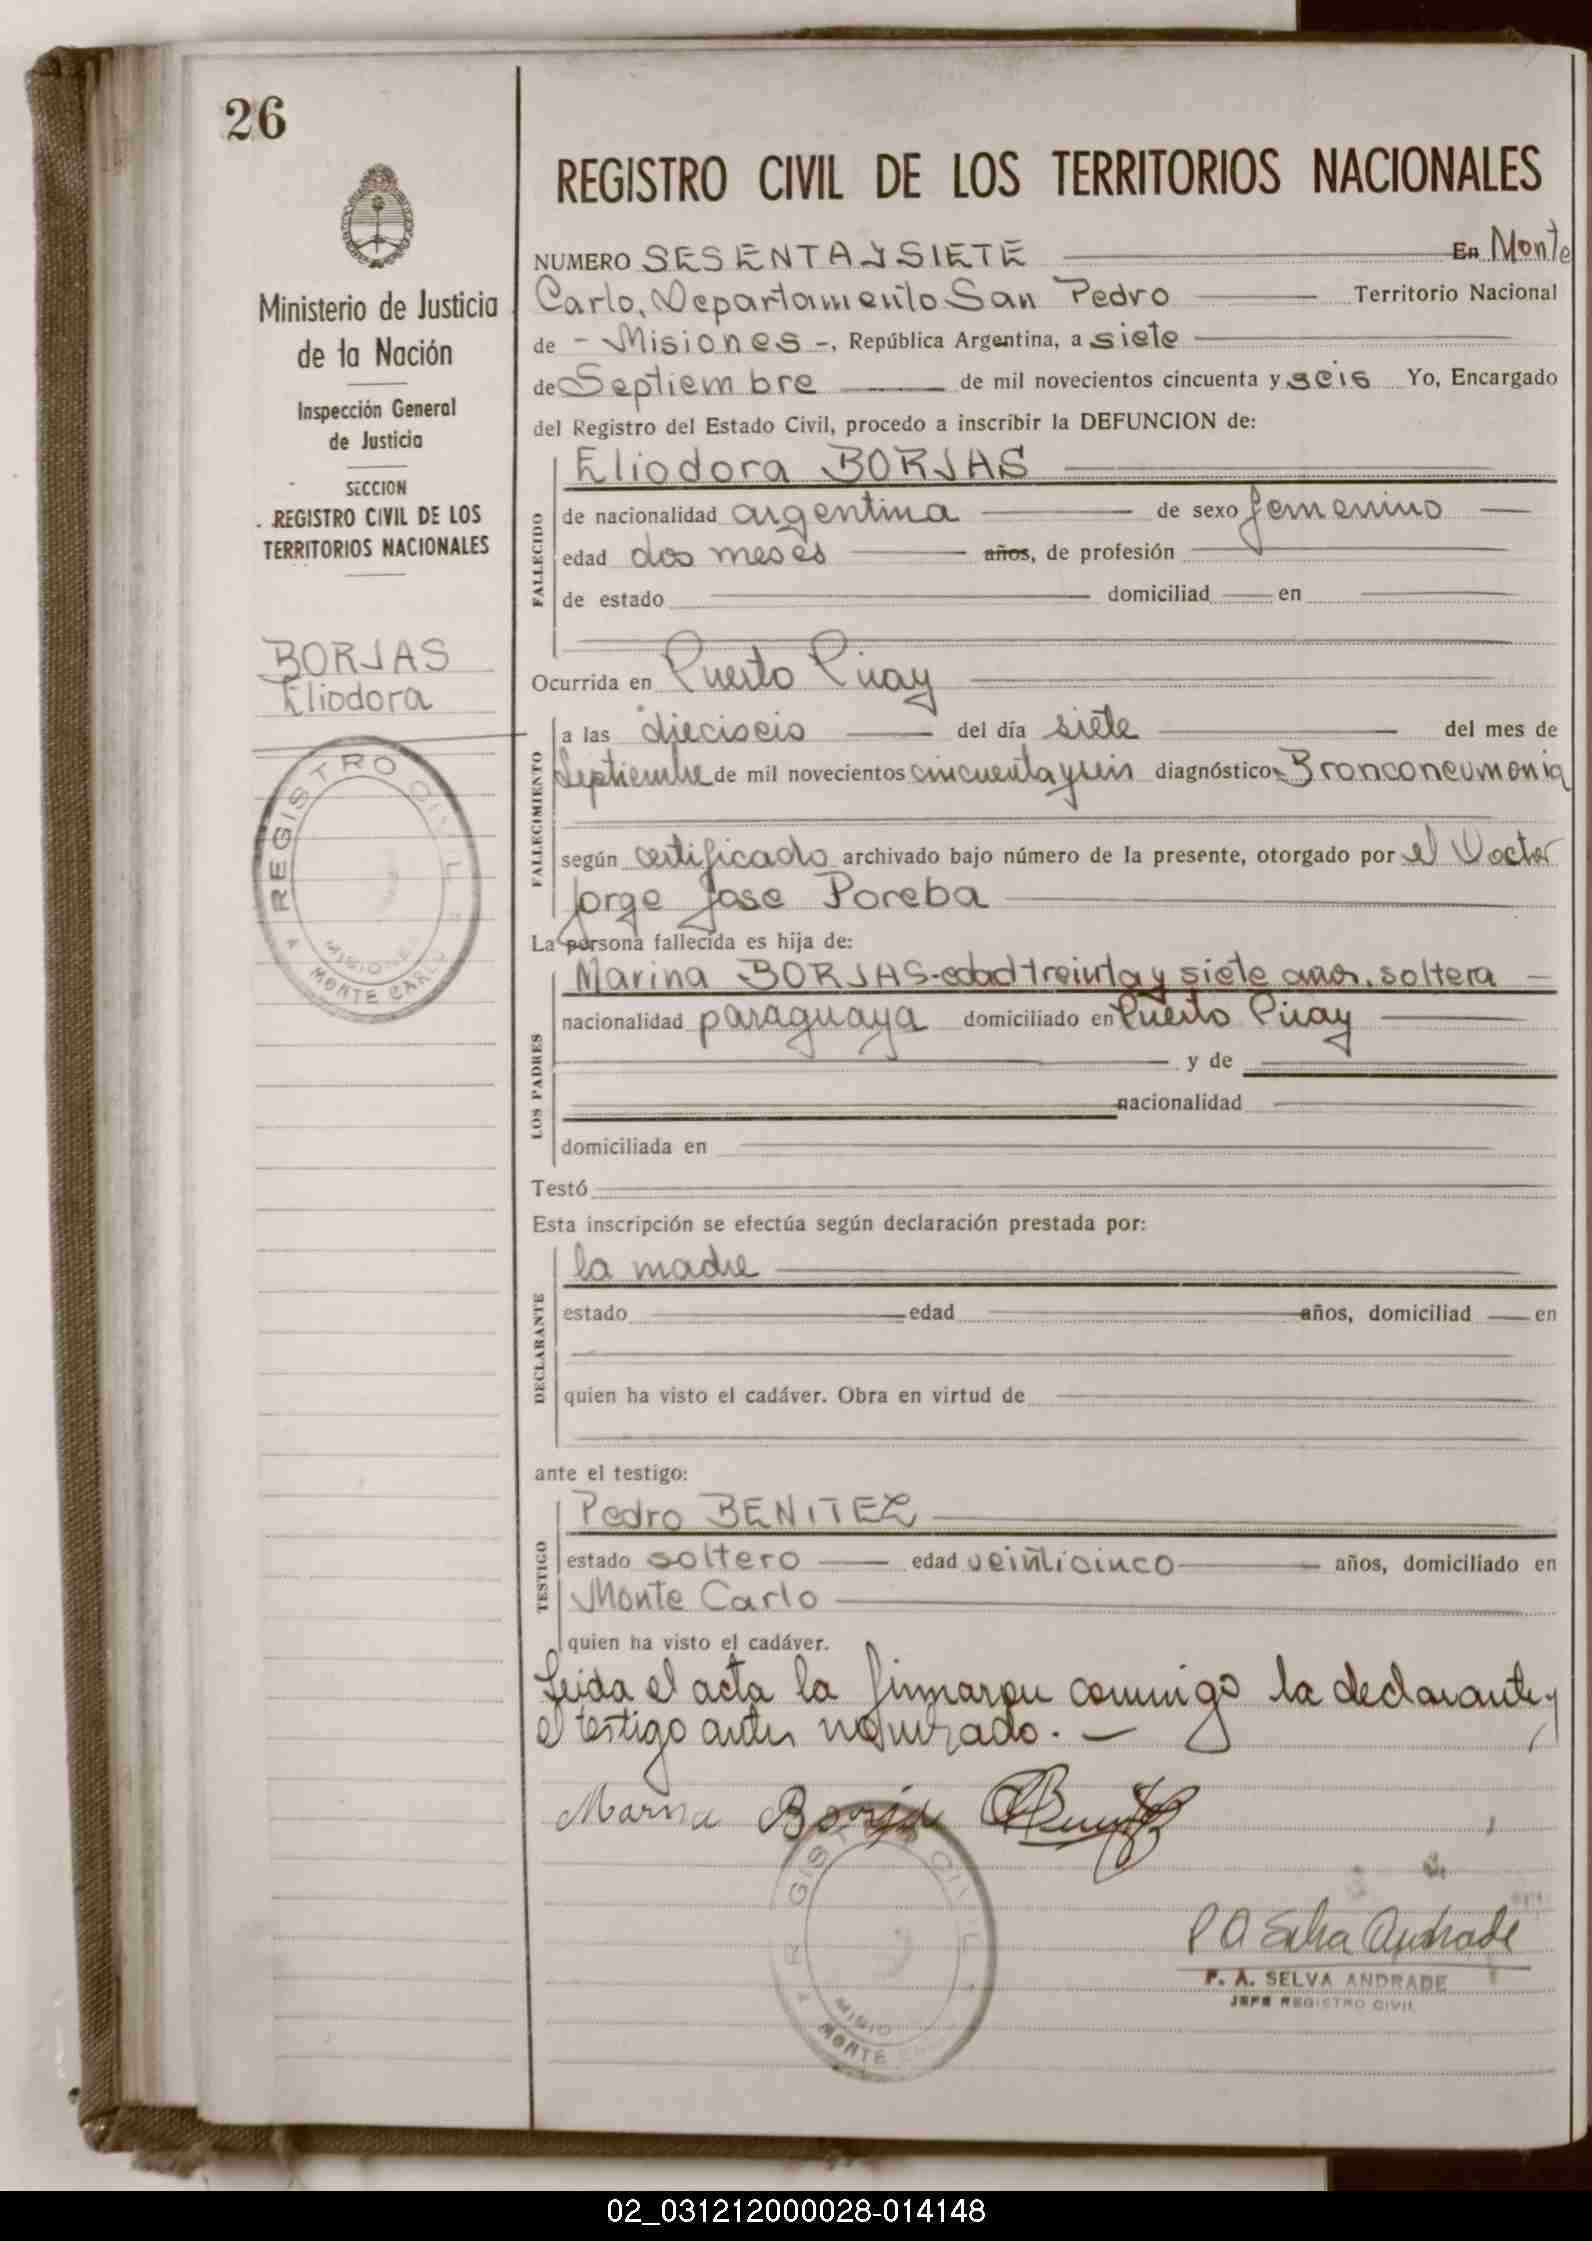 26
REGISTRO CIVIL DE LOS TERRITORIOS NACIONALES
Ministerio de Justicia
de la Nación
Inspección General
de Justicia
SECCION
REGISTRO CIVIL DE LOS
TERRITORIOS NACIONALES
BORJAS
Eliodora
REGISTRO CIVIL
MISIONES
MONTE CARLO
NUMERO SESENTA Y SIETE En Monte
Carlo, Departamento San Pedro Territorio Nacional
de - Misiones -, República Argentina, a siete
de Septiembre de mil novecientos cincuenta y seis Yo, Encargado
del Registro del Estado Civil, procedo a inscribir la DEFUNCION de:
FALLECIDO
Eliodora BORJAS
de nacionalidad argentina de sexo femenino
edad dos meses años, de profesión
de estado domiciliad en
Ocurrida en Puerto Piray
FALLECIMIENTO
a las dieciseis del día siete del mes de
Septiembre de mil novecientos cincuenta y seis diagnóstico Bronconeumonia
según certificado archivado bajo número de la presente, otorgado por el Doctor
Jorge Jose Poreba
La persona fallecida es hija de:
LOS PADRES
Marina BORJAS-edad treinta y siete años, soltera
nacionalidad paraguaya domiciliado en Puerto Piray
y de
nacionalidad
domiciliada en
Testó
Esta inscripción se efectúa según declaración prestada por:
DECLARANTE
la madre
estado edad años, domiciliad en
quien ha visto el cadáver. Obra en virtud de
ante el testigo:
TESTIGO
Pedro BENITEZ
estado soltero edad veinticinco años, domiciliado en
Monte Carlo
quien ha visto el cadáver.
Leida el acta la firmaron conmigo la declarante y
el testigo antes nombrado. —
Marina Borja
REGISTRO CIVIL
MISIO
MONTE
P A Selva Andrade
P. A. SELVA ANDRADE
JEFE REGISTRO CIVIL
02_031212000028-014148